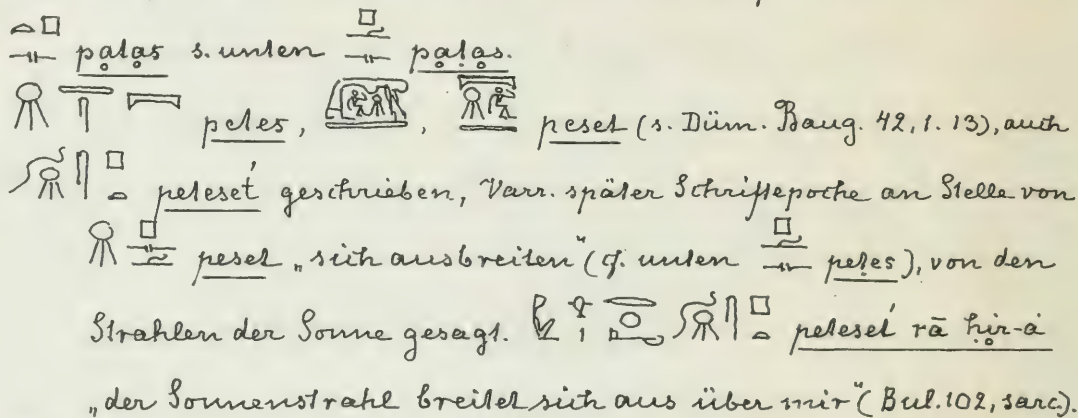 pạtạs s. unten pạtạs.
petes, , peset (s. Düm. Baug. 42, 1. 13), auch
peteset́ geschrieben, Varr. später Schriftepoche an Stelle von
peset „sich ausbreiten“ (cf. unten peṭes), von den
Strahlen der Sonne gesagt. peteset́ rā ḥir-á
„der Sonnenstrahl breitet sich aus über mir“ (Bul. 102, sarc.).